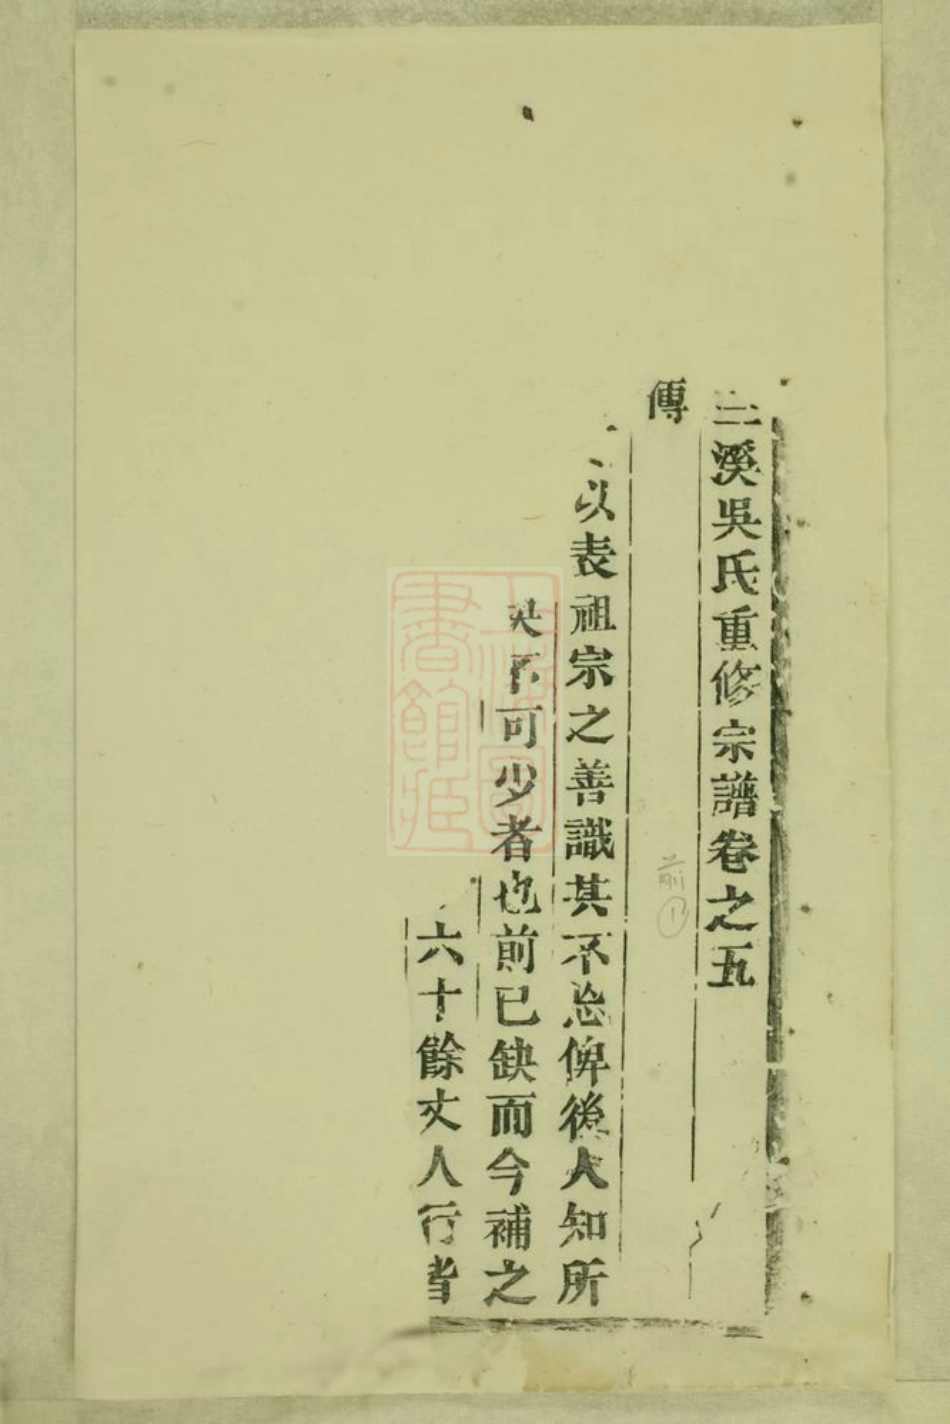 三溪吳氏重修宗譜卷之五
傳
以表祖宗之善識其不忘俾後人知所
不可少者也前已缺而今補之
六十餘丈人行者
前①
上海圖書館藏